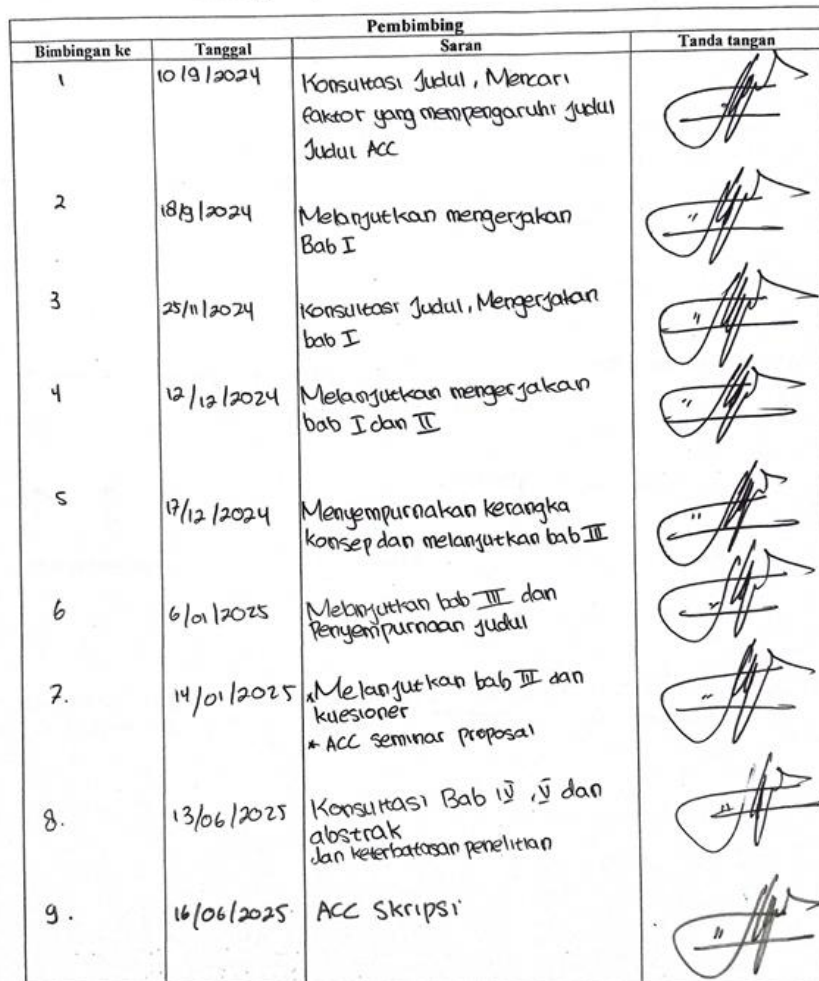 Pembimbing
Bimbingan ke Tanggal Saran Tanda tangan
1 10/9/2024 Konsultasi Judul, Mencari
faktor yang mempengaruhi judul
Judul ACC
2 18/9/2024 Melanjutkan mengerjakan
Bab I
3 25/11/2024 Konsultasi Judul, Mengerjakan
bab I
4 12/12/2024 Melanjutkan mengerjakan
bab I dan II
5 17/12/2024 Menyempurnakan kerangka
konsep dan melanjutkan bab III
6 6/01/2025 Melanjutkan bab III dan
Penyempurnaan judul
7. 14/01/2025 * Melanjutkan bab III dan
kuesioner
* ACC seminar proposal
8. 13/06/2025 Konsultasi Bab IV, V dan
abstrak
dan keterbatasan penelitian
9. 16/06/2025 ACC Skripsi